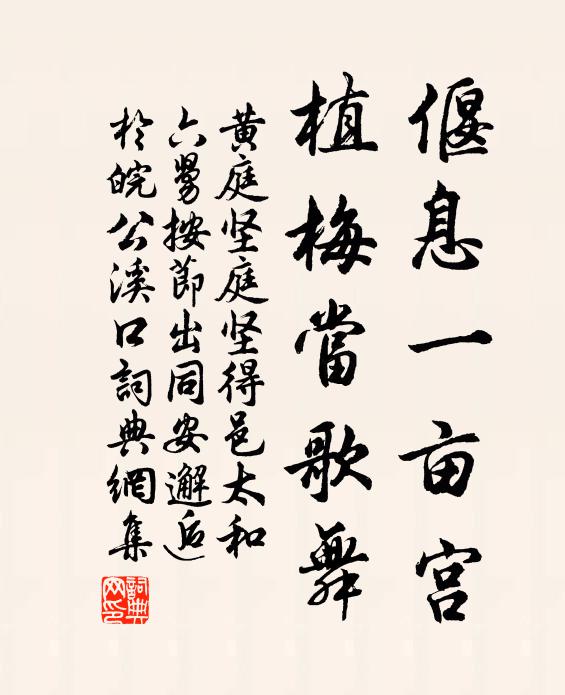 偃息一亩宫
植梅當歌舞
黄庭坚庭坚得邑太和
六舅按節出同安邂逅
於皖公溪口詞典網集